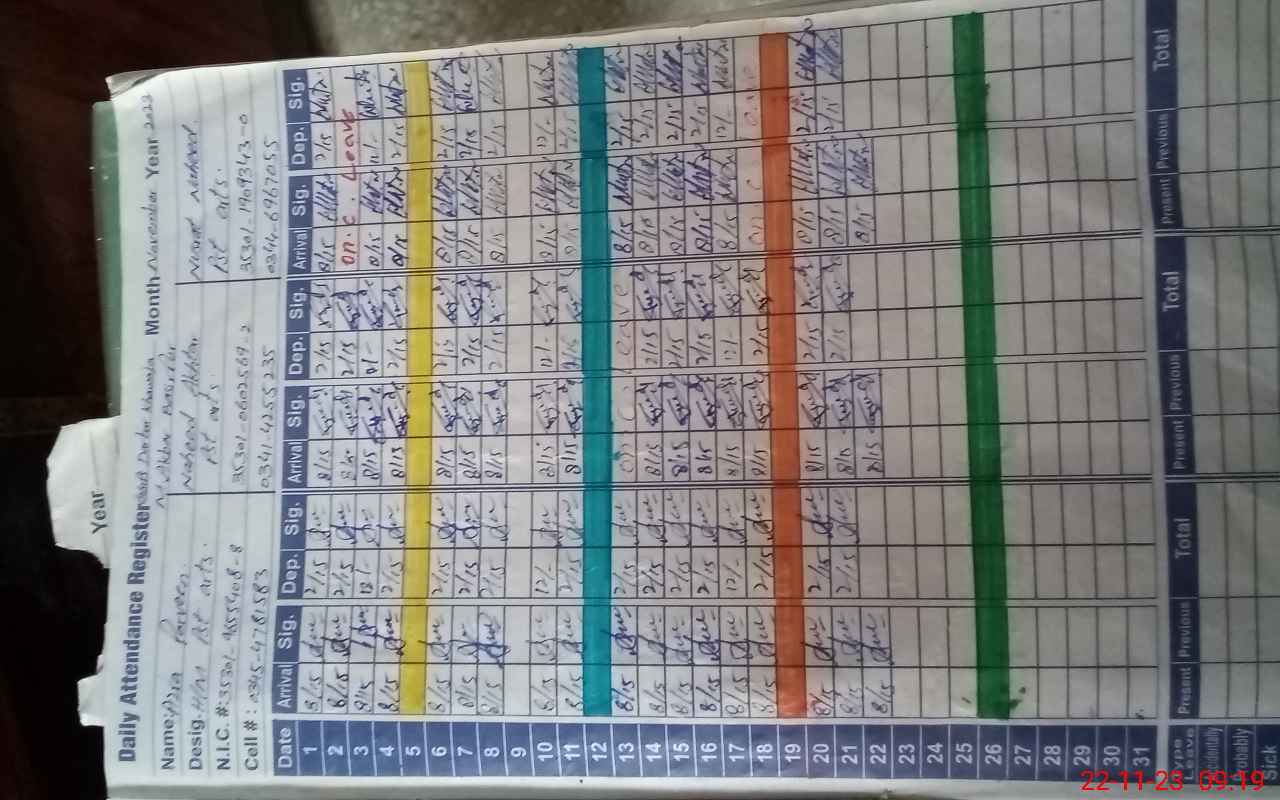 Year
Daily Attendance Register Month November Year 2023
Name: Hina Parveen Naheed Akhtar Nusrat Naheed
Desig. H/M Pst arts. Pst arts. Pst arts.
N.I.C. # 35301-9655408-8 35301-0602569-2 35301-1909343-0
Cell #: 0345-4781583 0341-4255235 0344-6967055
Date Arrival Sig. Dep. Sig. Arrival Sig. Dep. Sig. Arrival Sig. Dep. Sig.
1 8/15 2/15 8/15 2/15 8/15 2/15
2 8/15 2/15 8/15 2/15 on C. Leave
3 8/15 12/- 8/15 12/- 8/15 12/-
4 8/15 2/15 8/15 2/15 8/15 2/15
5
6 8/15 2/15 8/15 2/15 8/15 2/15
7 8/15 2/15 8/15 2/15 8/15 2/15
8 8/15 2/15 8/15 2/15 8/15 2/15
9
10 8/15 12/- 8/15 12/- 8/15 12/-
11 8/15 2/15 8/15 2/15 8/15 2/15
12
13 8/15 2/15 on C Leave 8/15 2/15
14 8/15 2/15 8/15 2/15 8/15 2/15
15 8/15 2/15 8/15 2/15 8/15 2/15
16 8/15 2/15 8/15 2/15 8/15 2/15
17 8/15 12/- 8/15 12/- 8/15 12/-
18 8/15 2/15 8/15 2/15 on C
19
20 8/15 2/15 8/15 2/15 8/15 2/15
21 8/15 2/15 8/15 2/15 8/15 2/15
22 8/15 8/15 8/15
23
24
25
26
27
28
29
30
31
Type Leave Present Previous Total Present Previous Total Present Previous Total
Probably
Sick
22-11-23 09:19